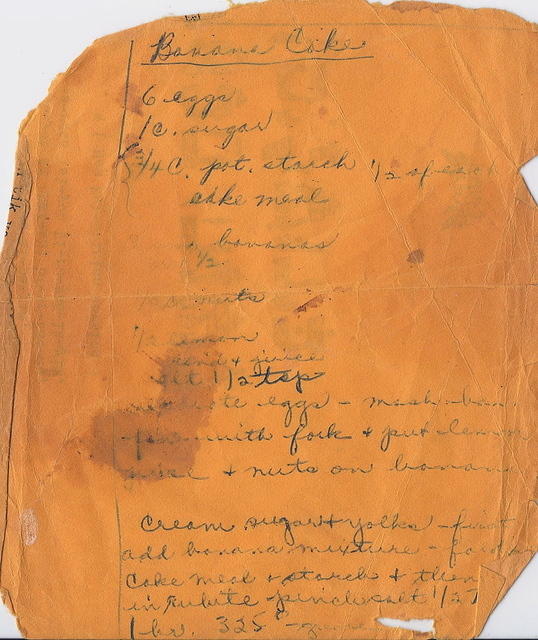 Banana Cake
6 eggs
1 c. sugar
3/4 C. pot. starch 1/2 of each
cake meal
bananas
1/2
nuts
1/2 lemon
rind & juice
salt 1/2 tsp
eggs - mash ban
with fork & put lemon
juice & nuts on banana
Cream sugar & yolks - first
add banana mixture -
Cake meal & starch & then
in pinch salt 1/2 T
1 hr. 325°